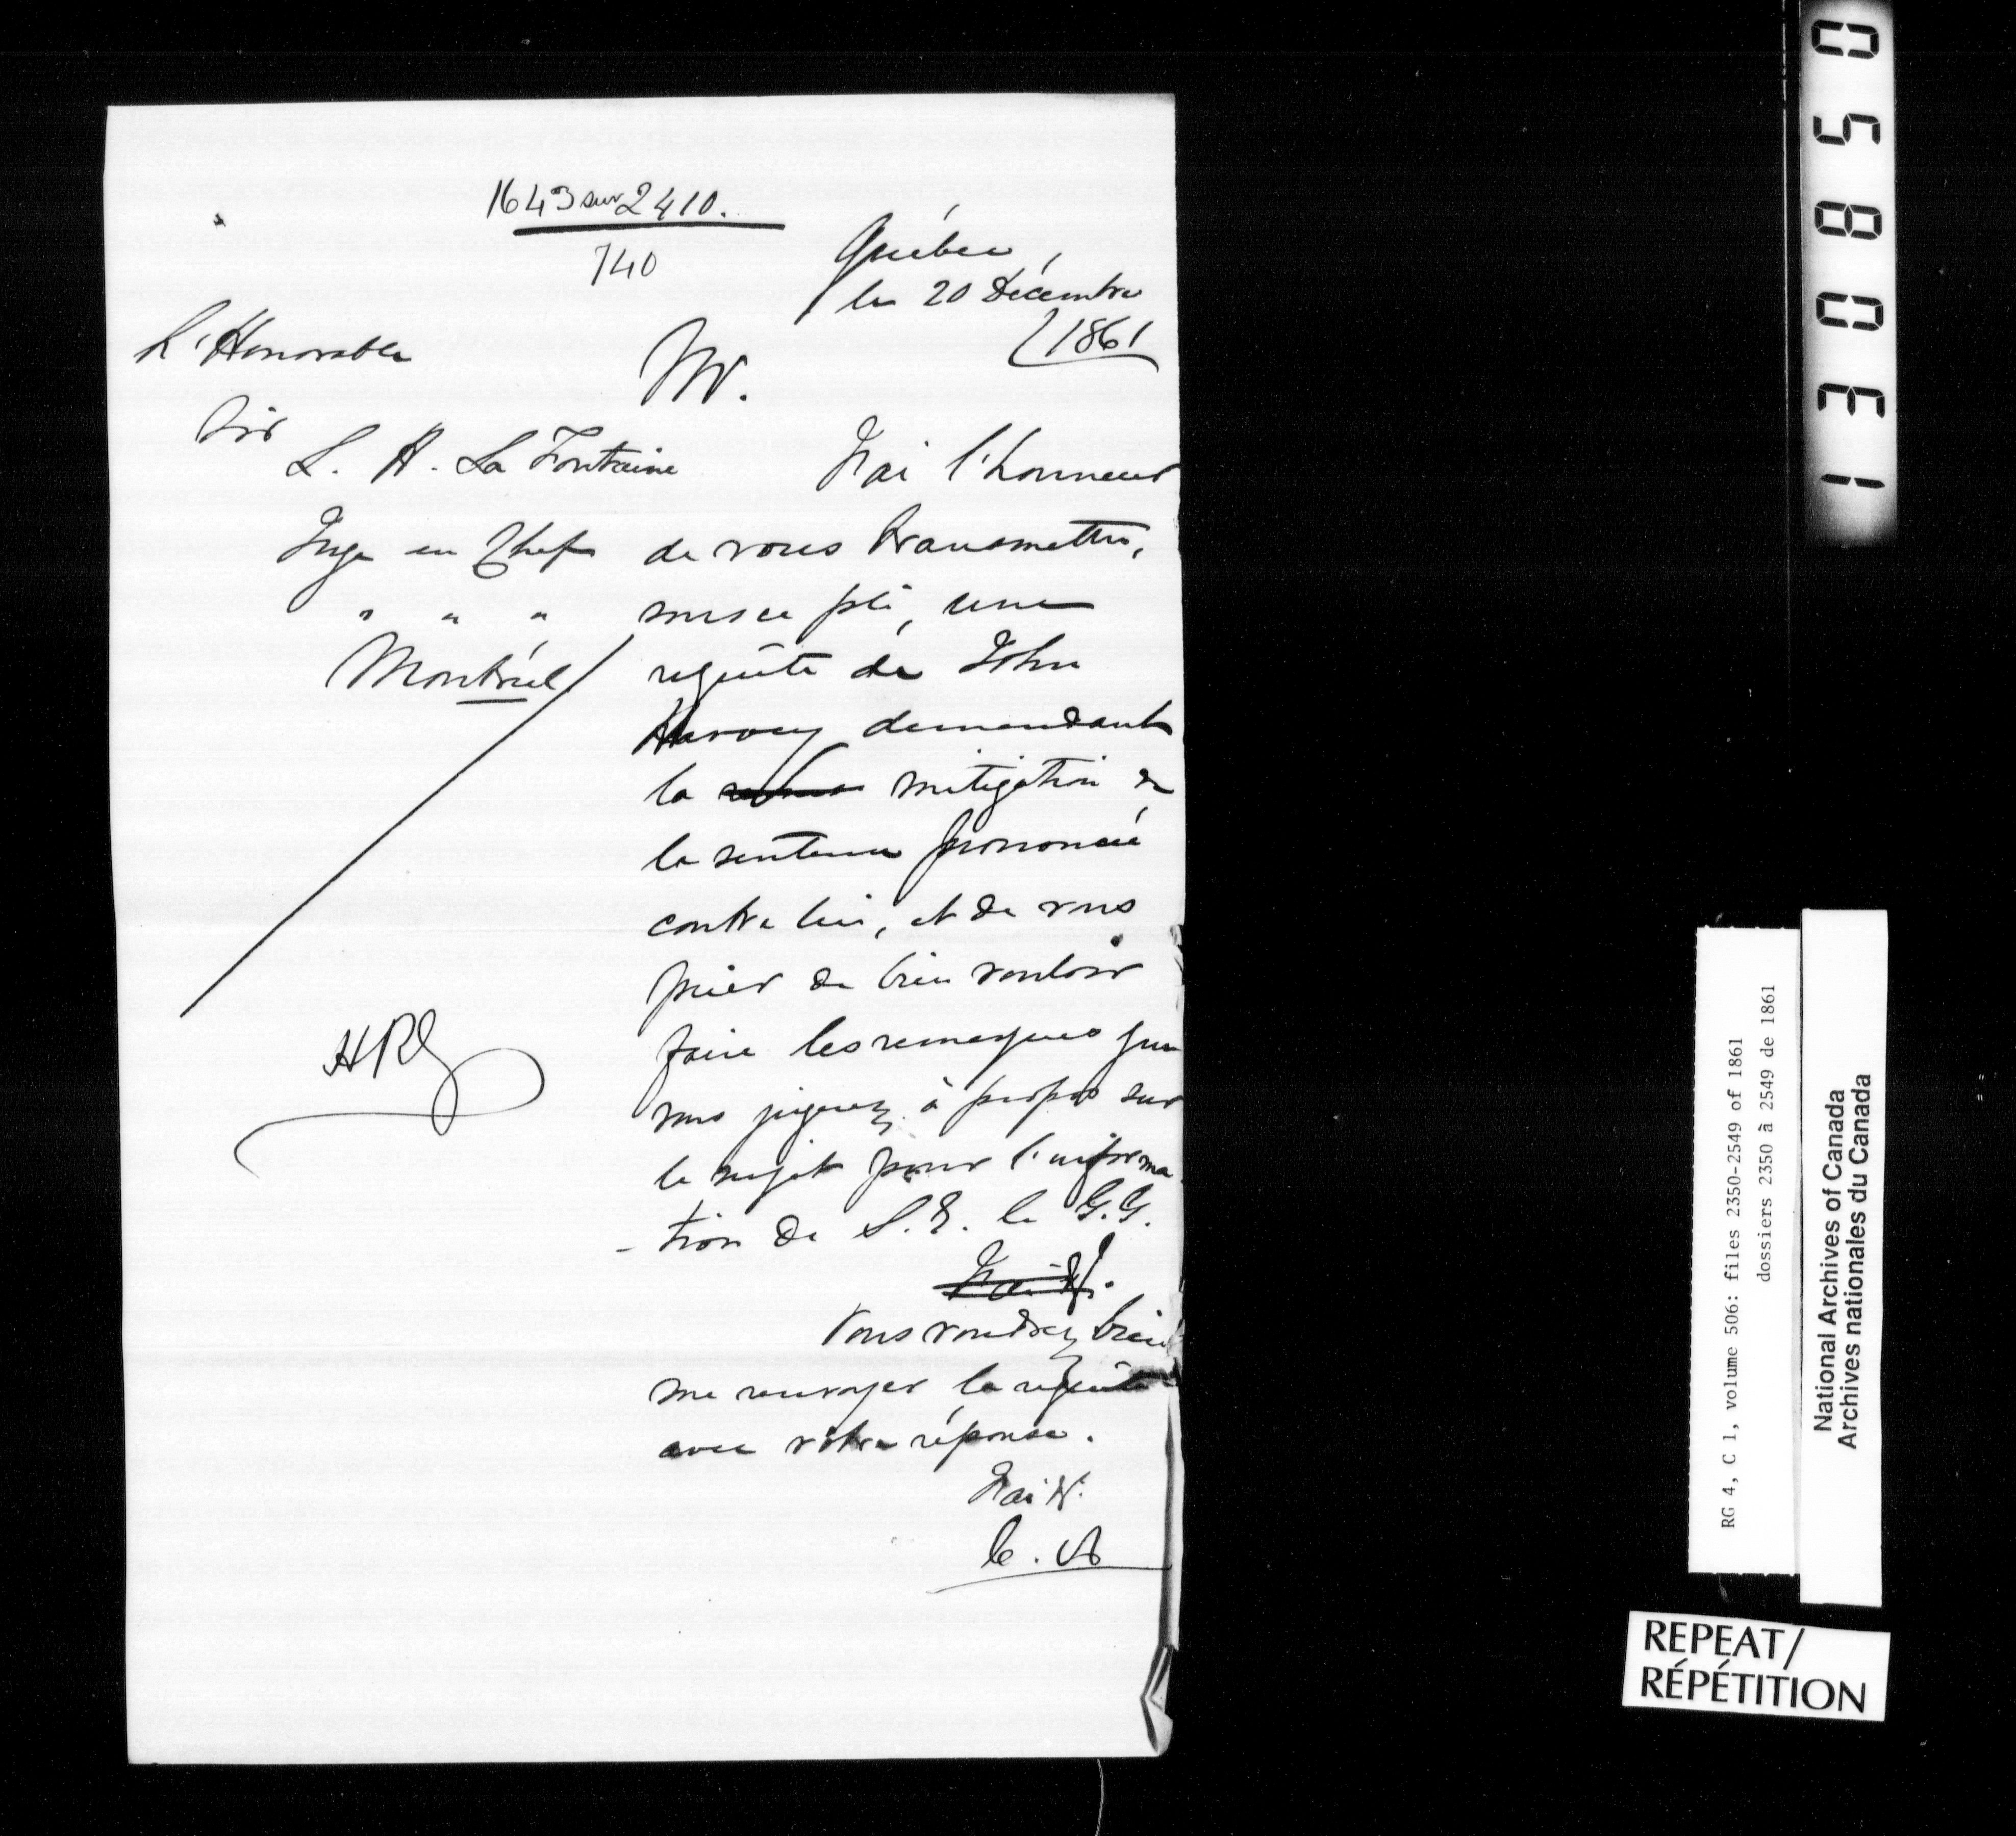 1643 sur 2410.
740
Québec,
le 20 Décembre
1861
L'Honorable
Sir
L. H. La Fontaine
Juge en Chef
" " "
Montréal
M.
J'ai l'honneur
de vous transmettre,
sous ce pli, une
requête de John
Harvey demandant
la mitigation de
la sentence prononcée
contre lui, et de vous
prier de bien vouloir
faire les remarques que
vous jugerez à propos sur
le sujet pour l'informa
-tion de S. E. le G.G.
J'ai &.
Vous voudrez bien
me renvoyer la requête
avec votre réponse.
J'ai &.
130850
RG 4, C 1, volume 506: files 2350-2549 of 1861
dossiers 2350 à 2549 de 1861
National Archives of Canada
Archives nationales du Canada
REPEAT/
RÉPÉTITION